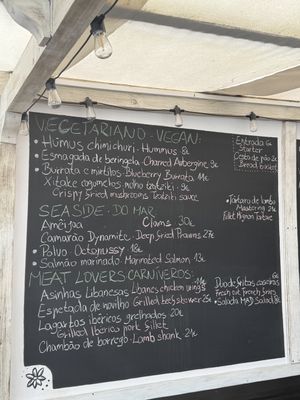 VEGETARIANO - VEGAN:
• Humus chimichuri - Hummus 8€
• Esmagada de beringela - Charred Aubergine 9€
• Burrata e mirtilos - Blueberry Burrata 14€
Xitake cogumelos molho tzatziki 9€
Crispy Fried mushrooms Tzatziki sauce
SEASIDE - DO MAR
Amêijoa Clams 30€
Camarão Dynamite - Deep Fried Prawns 27€
• Polvo Octopussy 18€
• Salmão marinado - Marinated Salmon 13€
MEAT LOVERS CARNÍVEROS:
Asinhas Libanesas - Libanes chicken wings
Espetada de novilho - Grilled beef skewer 25€
Lagartos ibéricos grelhados 20€
Grilled Iberico pork fillet
Chambão de borrego - Lomb shank 21€
• Entrada €
Starter
Cesto de pão 2€
Bread basket
• Tártaro de lombo
21€
Fillet Mignon Tartare
6€
Fresh cut french fries
• Salada MAD Salad 8€